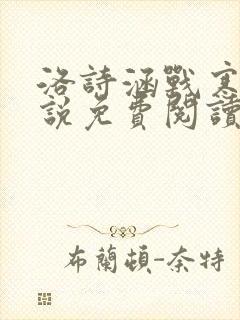 洛詩涵戰寒
說免費閱讀
布蘭頓-奈特